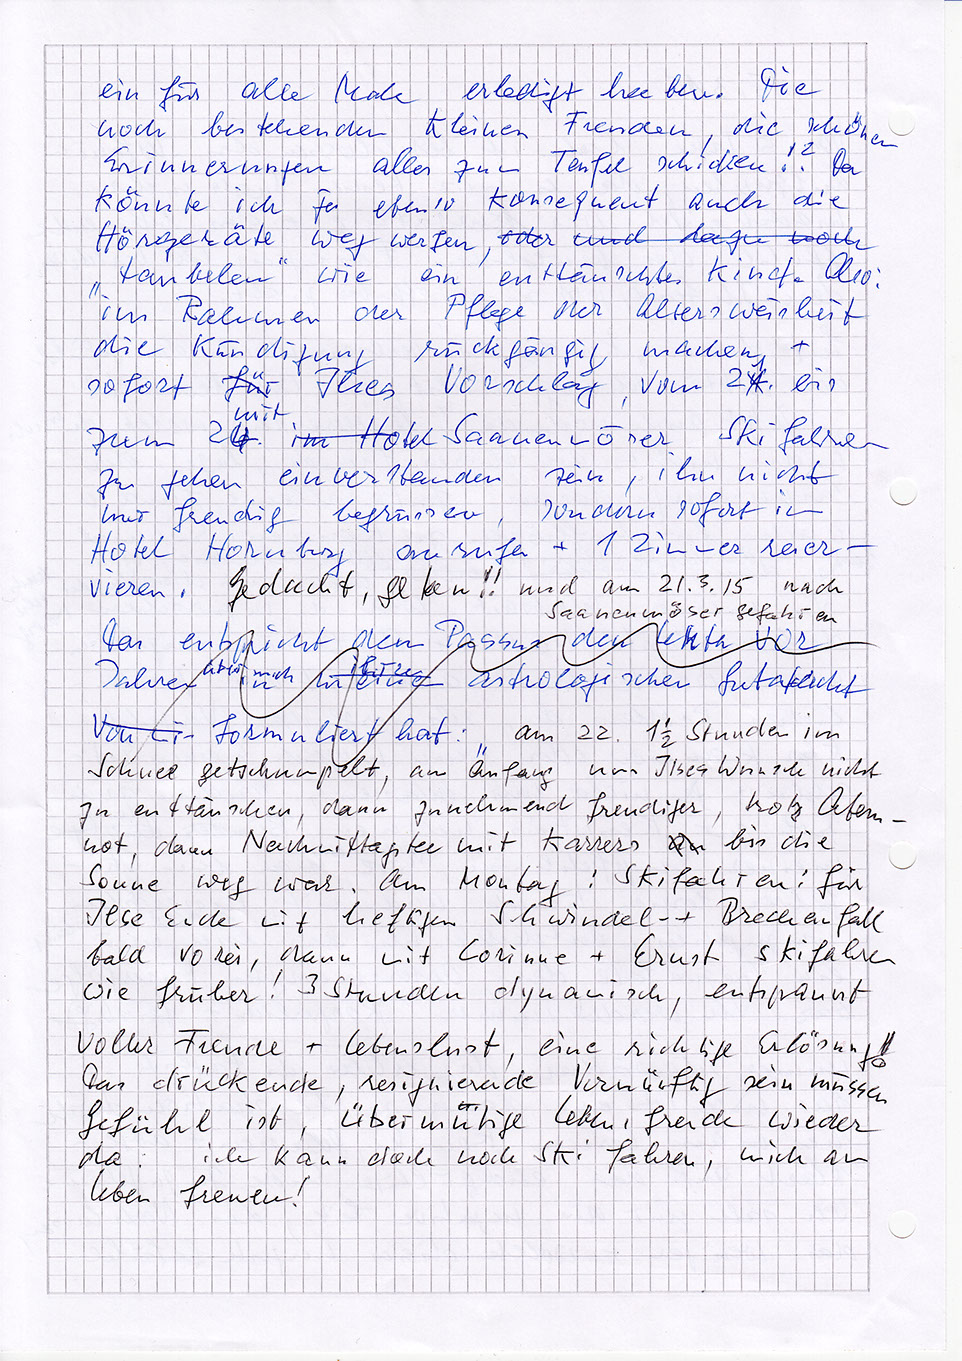 ein für alle Male erledigt haben. Die
noch bestehenden kleinen Freuden, die schönen
Erinnerungen alles zum Teufel schicken!? Da
könnte ich ja ebenso konsequent auch die
Hörgeräte weg werfen, oder und dazu noch
„täubelen“ wie ein enttäuschtes Kind. Also:
im Rahmen der Pflege der Altersweisheit
die Kündigung rückgängig machen, +
sofort für Ilses Vorschlag, vom 21. bis
mit
zum 24. im Hotel Saanenmöser Skifahren
zu gehen einverstanden sein, ihn nicht
nur freudig begrüssen, sondern sofort im
Hotel Hornberg anrufen + 1 Zimmer reser-
vieren. Gedacht, getan!! und am 21.3.15 nach
Saanenmöser gefahren
Das entspricht dem Passus den letkta vor
Jahren über mich in meine ihre astrologischen Gutacht
Von Li- formuliert hat: am 22. 1½ Stunden im
Schnee getschumpelt, am Anfang um Ilses Wunsch nicht
zu enttäuschen, dann zunehmend freudiger, trotz Atem-
not, dann Nachmittagstee mit Karrers bis die
Sonne weg war. Am Montag! Skifahren! für
Ilse Ende mit heftigem Schwindel-+ Brechanfall
bald vorei, dann mit Corinne + Ernst skifahren
wie früher! 3 Stunden dynamisch, entspannt
voller Freude + Lebenslust, eine richtige Erlösung!!
Das drückende, resignierende Vernünftig sein müssen
Gefühl ist, übermütige Lebensfreude wieder
da: ich kann doch noch Ski fahren, mich am
Leben freuen!